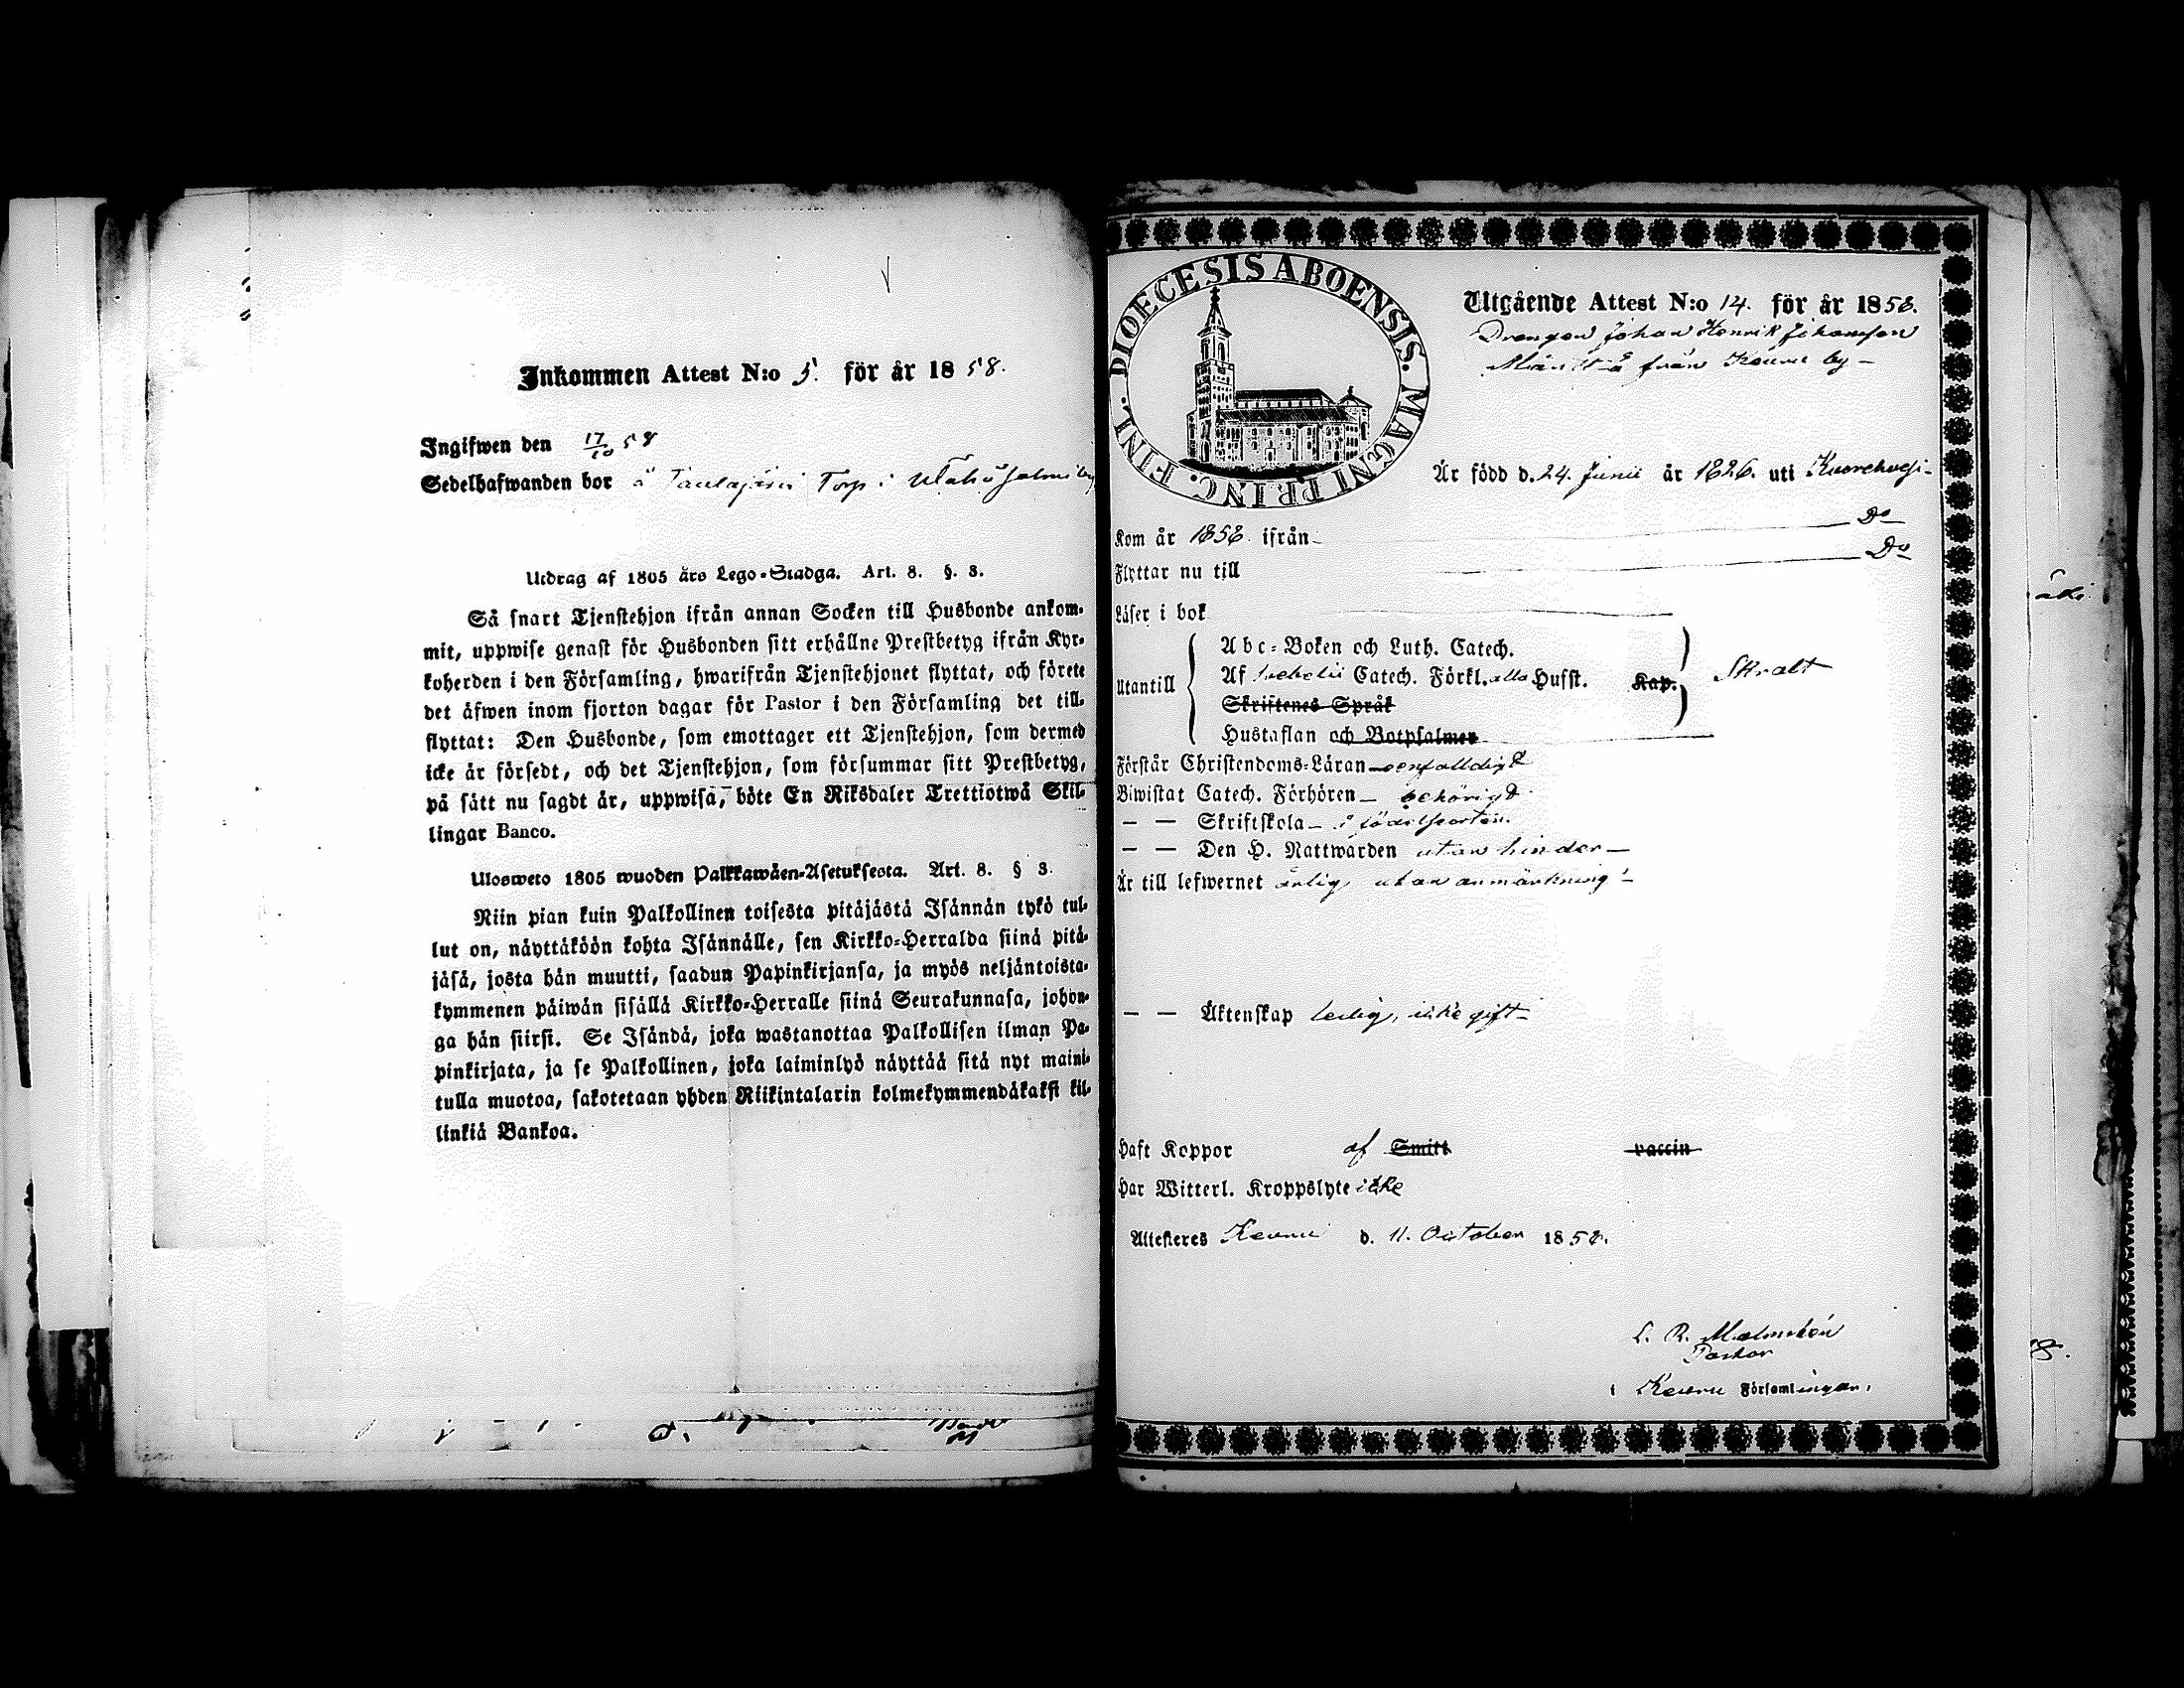 Inkommen Attest N:o 5. för år 1858.
Ingifwen den 17/10 58
Sedelhafwanden bor å Torp i
Utdrag af 1805 års Lego-Stadga. Art. 8. §. 3.
Så snart Tjenstehjon ifrån annan Socken till Husbonde ankom-
mit, uppwise genast för Husbonden sitt erhållne Prestbetyg ifrån Kyr-
koherden i den Församling, hwarifrån Tjenstehjonet flyttat, och förete
det äfwen inom fjorton dagar för Pastor i den Församling det till-
flyttat: Den Husbonde, som emottager ett Tjenstehjon, som dermed
icke är försedt, och det Tjenstehjon, som försummar sitt Prestbetyg,
på sätt nu sagdt är, uppwisa, böte En Riksdaler Trettiotwå Skil-
lingar Banco.
Ulosweto 1805 wuoden Palkkawäen-Asetuksesta. Art. 8. § 3.
Niin pian kuin Palkollinen toisesta pitäjästä Isännän tykö tul-
lut on, näyttäköön kohta Isännälle, sen Kirkko-Herralda siinä pitä-
jäsä, josta hän muutti, saadun Papinkirjansa, ja myös neljäntoista-
kymmenen päiwän sisällä Kirkko-Herralle siinä Seurakunnasa, johon-
ga hän siirsi. Se Isändä, joka wastanottaa Palkollisen ilman Pa-
pinkirjata, ja se Palkollinen, joka laiminlyö näyttää sitä nyt maini-
tulla muotoa, sakotetaan yhden Riikintalarin kolmekymmendäkaksi kil-
linkiä Bankoa.
DIOECESIS ABOENSIS. MAGNI PRINC. FINL.
Utgående Attest N:o 14. för år 1858.
Drengen Johan Henrik Johansson
från Keuru by
Är född d. 24. Junii år 1826. uti Kuorehvesi
Kom år 1858 ifrån Do
Flyttar nu till Do
Läser i bok
Utantill
Abc-Boken och Luth. Catech.
Af Svebelii Catech. Förkl. alla Husst. Kap. Skralt
Skriftenes Språk
Hustaflan och Botpsalmer
Förstår Christendoms-Läran enfalldigt
Biwistat Catech. Förhören behörigt
— — Skriftskola i födelseorten.
— — Den H. Nattwarden utan hinder
Är till lefwernet ärlig, utan anmärkning
— — Äktenskap ledig, icke gift
Haft Koppor af Smitt vaccin
Har Witterl. Kroppslyte icke
Attesteres Keuru d. 11. October 1858.
C. R. Malmström
Pastor
i Keuru Församlingar.